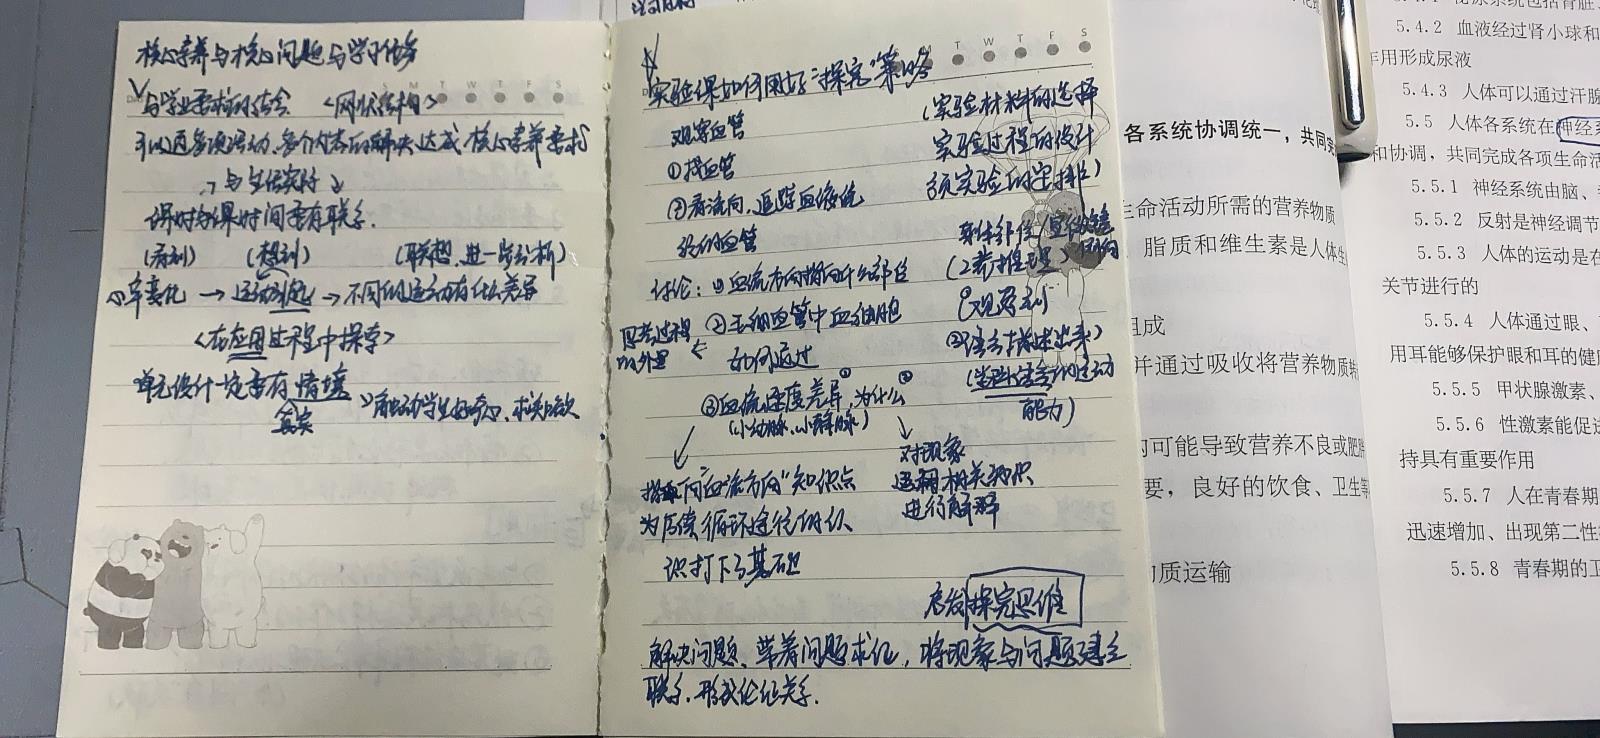 核心素养与核心问题与学习任务
与学业要求的结合 <网状结构>
可以通多项活动、多个内容的解决达成核心素养要求
与生活实际
课时与课时间要有联系.
(看到) (想到) (联想、进一步分析)
→ 运动引起 → 不同的运动有什么差异
<在应用过程中探索>
单元设计一定要有情境
真实
学生好奇心、求知欲
M T W T F S
实验课如何用好"探究"策略
观察血管
①找血管
②看流向,追踪血液流
讨论:①血流方向指向什么部位
②毛细血管中血细胞
如何通过
思考过程
外显
③血流速度差异,为什么
(小动脉、小静脉)
"血流方向"知识点
为后续循环途径的认
识打下了基础
(实验材料的选择
实验过程的设计
预实验的安排)
①观察到
②语言描述出来)
能力)
对现象
运用相关知识
进行解释
启发探究思维
解决问题、带着问题求证,将现象与问题建立
联系.形成论证关系.
T W T F S
学习目标
各系统协调统一,共同完
生命活动所需的营养物质
脂质和维生素是人体生
组成
并通过吸收将营养物质转
的可能导致营养不良或肥胖
要,良好的饮食、卫生等
物质运输
5.4.1 泌尿系统包括肾脏、
5.4.2 血液经过肾小球和
作用形成尿液
5.4.3 人体可以通过汗腺
5.5 人体各系统在神经系
和协调,共同完成各项生命活
5.5.1 神经系统由脑、
5.5.2 反射是神经调节
5.5.3 人体的运动是在
关节进行的
5.5.4 人体通过眼、
用耳能够保护眼和耳的健康
5.5.5 甲状腺激素、
5.5.6 性激素能促进
持具有重要作用
5.5.7 人在青春期
迅速增加、出现第二性
5.5.8 青春期的卫